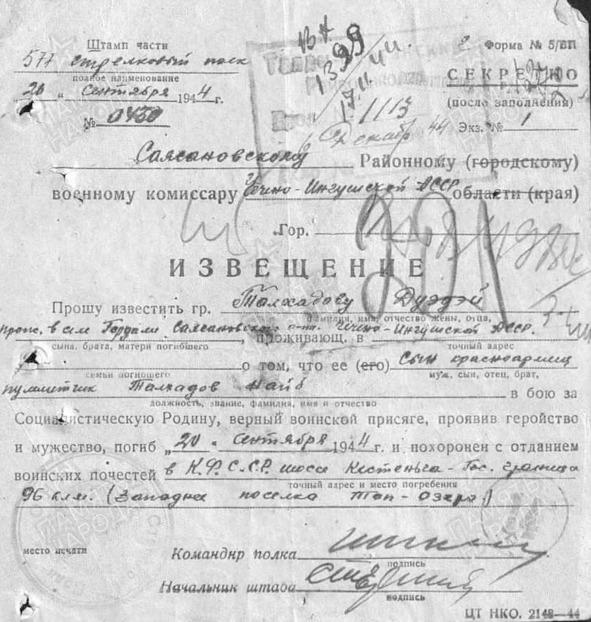 Штамп части
577 стрелковый полк
полное наименование
20 „ сентября 1944 г.
№ 0430
Форма № 5/БП
СЕКРЕТНО
(после заполнения)
Экз. № 1
1113
декабр 44
Саясановскому Районному (городскому)
военному комиссару Чечено-Ингушской АССР области (края)
Гор.
891
ИЗВЕЩЕНИЕ
Прошу известить гр. Талхадову
фамилия, имя, отчество жены, отца,
прож. в сел Гордали Саясановского Чечено-Ингушской АССР.
сына, брата, матери погибшего проживающ. в точный адрес
о том, что ее (его) сын красноармеец
семьи погибшего муж, сын, отец, брат,
пулеметчик Талхадов в бою за
должность, звание, фамилия, имя и отчество
Социалистическую Родину, верный воинской присяге, проявив геройство
и мужество, погиб „20 „ сентября 1944 г. и похоронен с отданием
воинских почестей в К.Ф.С.С.Р. шоссе Кестеньга - Гос. граница
точный адрес и место погребения
96 клм. (Западнее поселка Топ-Озеро)
место печати
Командир полка
подпись
Начальник штаба
подпись
ЦТ НКО. 2148—44